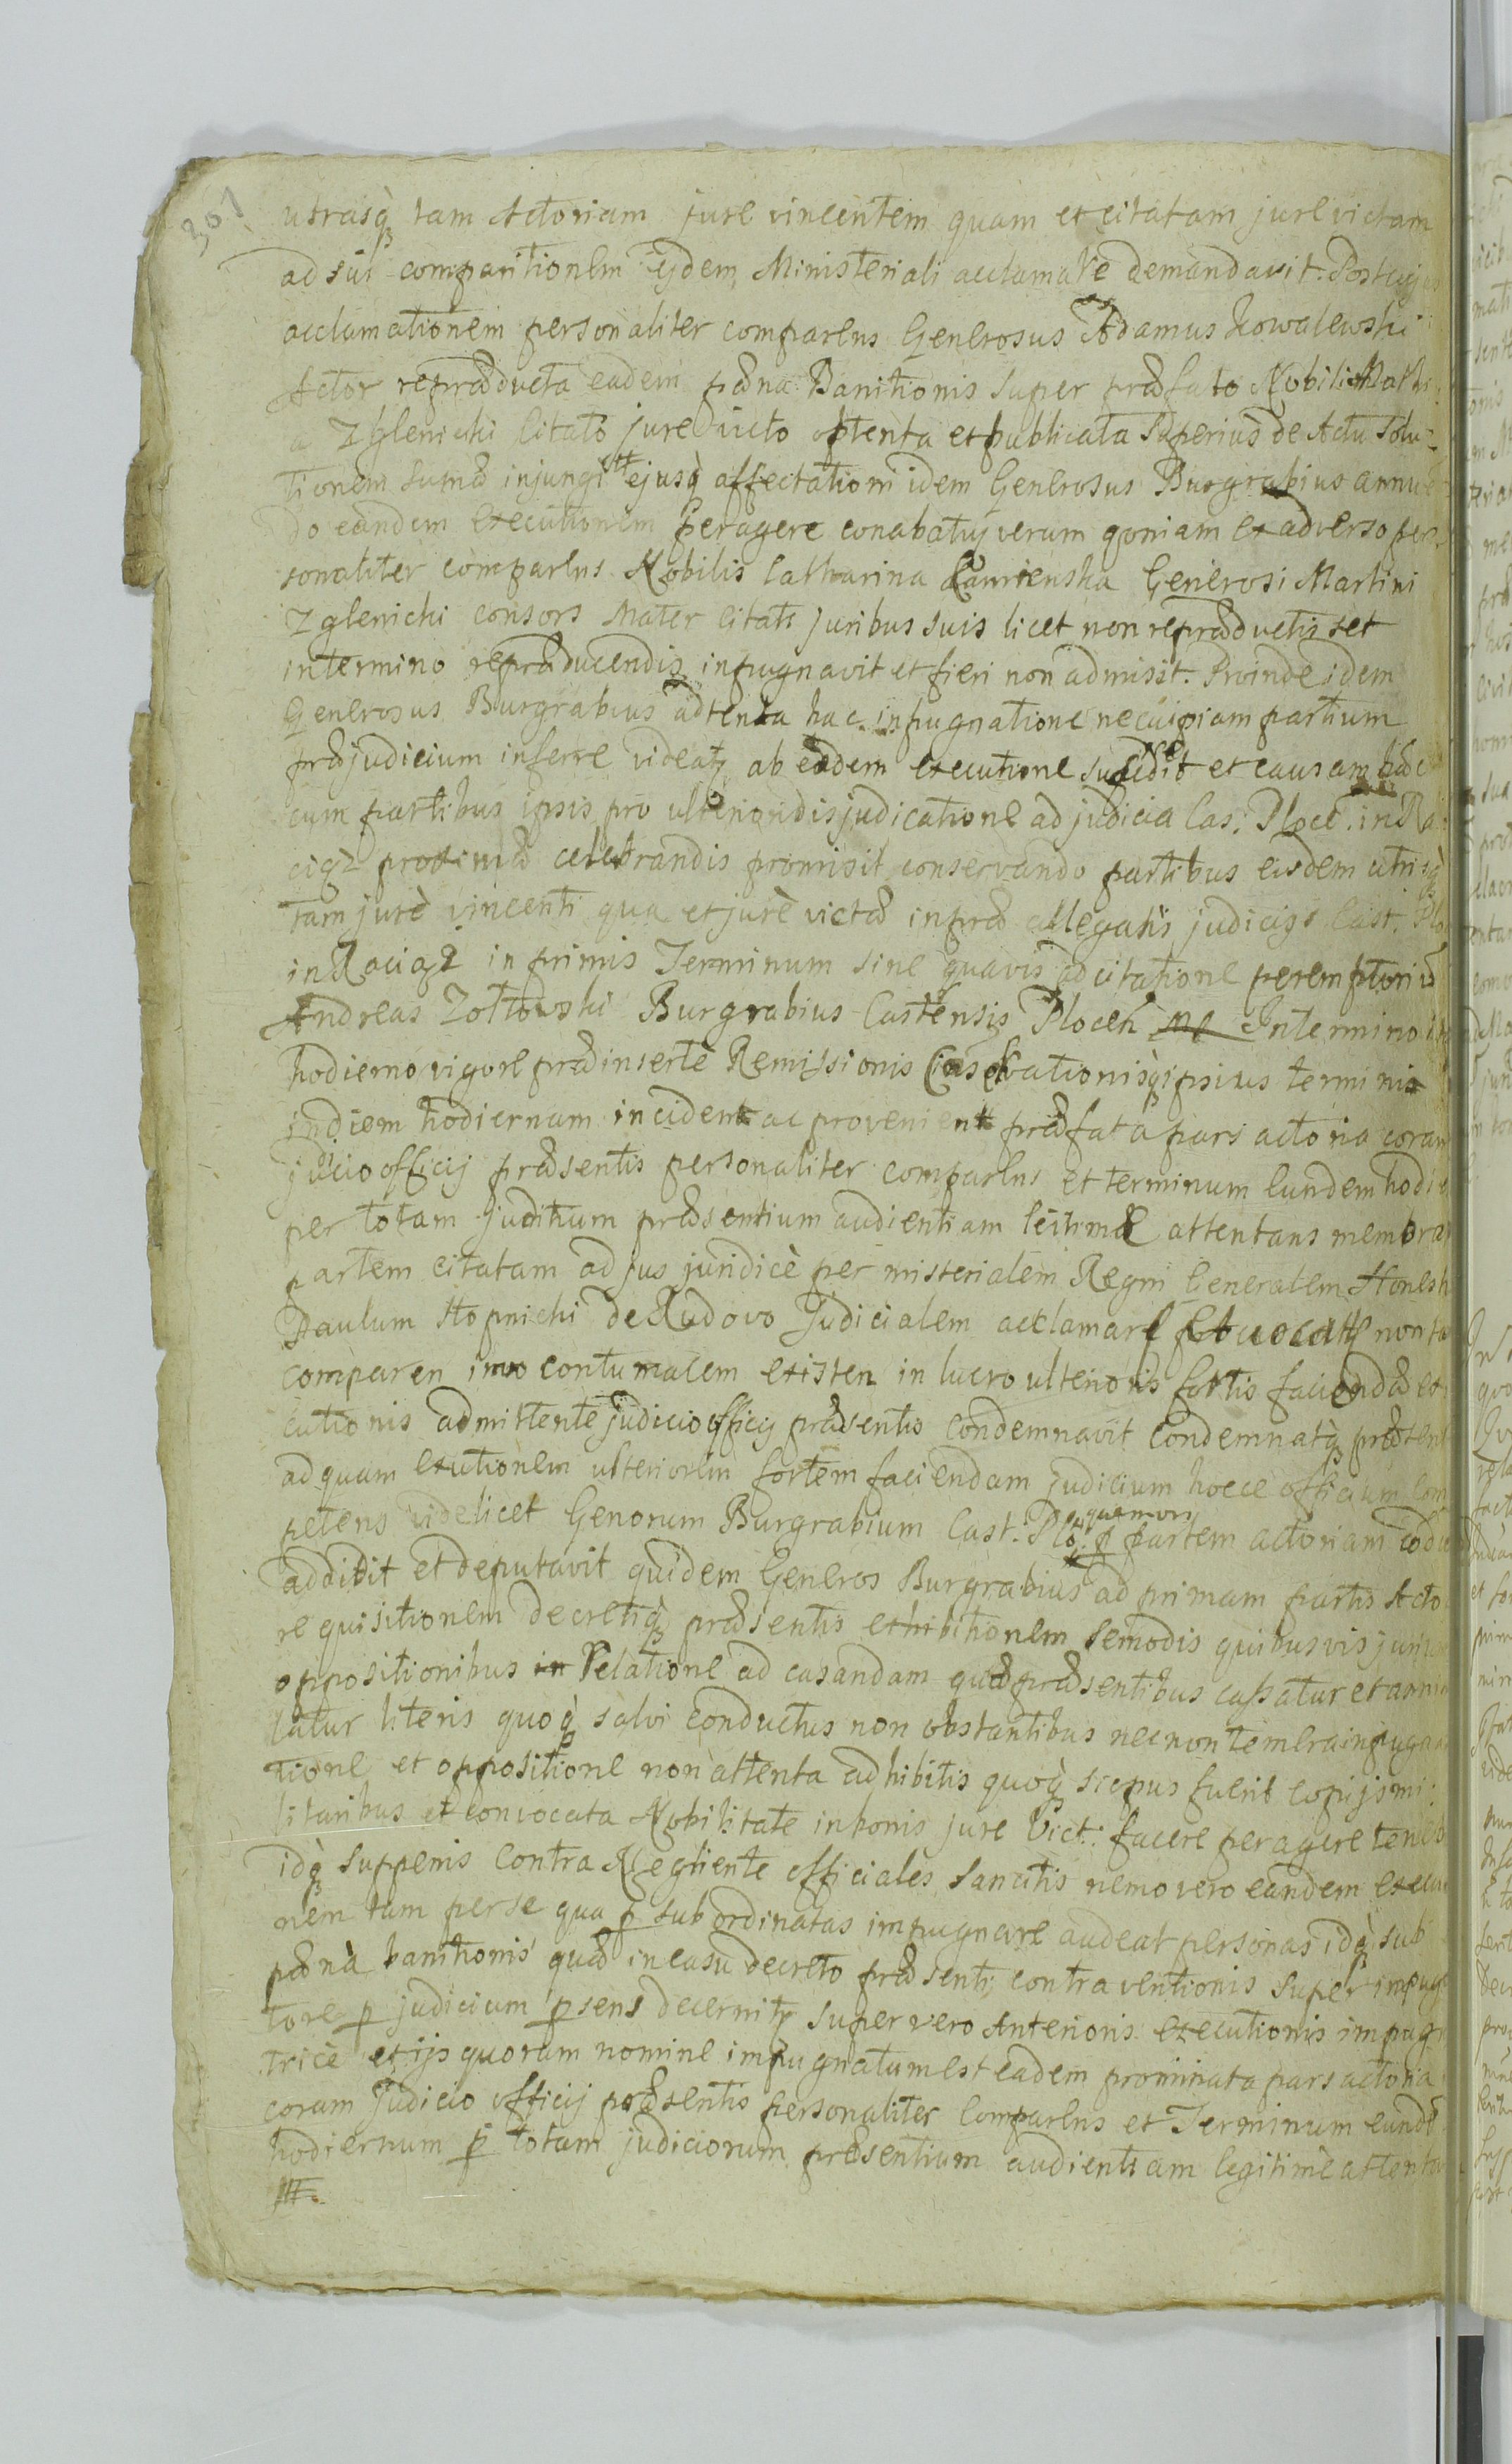 301
utrasq; tam Actoriam jure vincentem quam et citatam jure victam
ad sui comparitionem ejdem Ministeriali acclamare demandavit. Post cujus
acclamationem personaliter comparens Generosus Adamus Kowalewski
Actor repræducta eadem pæna Banitionis super præfato Nobili Math
a Zglenicki Citato jure victo optenta et publicata superius de Actu solu-
tionem sumæ injungi ejusq; affectationi idem Generosus Burgrabius annuen
do eandem executionem peragere conabatur verum qoniam ex adverso per-
sonaliter comparens Nobilis Catharina Generosi Martini
Zglenicki consors Mater Citati juribus suis licet non repræductis set
in termino repræducendis inpugnavit et fieri non admisit. Proinde idem
Generosus Burgrabius adtenta hac inpugnatione ne cuipiam partium
præjudicium inferre videatur ab eadem executione et causam hac
cum partibus ipsis pro ulteriori disjudicatione ad judicia Cas. Ploce. in Ra
ciąz proximæ celebrandis promisit conservando partibus eisdem utrisq;
tam jure vincenti qua et jure victæ in præ allegatis judicijs Cast. Plo
in Raciąz in primis Terminum sine quavis adcitatione peremptoriæ
Andreas Zołtowski Burgrabius Castensis Plocen In termino
hodierno vigore præinserte Remissionis ipsius terminis
in diem hodiernam incident ac provenient præfata pars actoria coram
juicio officij præsentis personaliter comparens et terminum eundem hodie
per totam juditium præsentium audientiam leitimæ attentans membra
partem citatam ad jus juridicè per misterialem Regni Generalem Honest
Paulum Stopnicki de Rudovo Judicialem acclamare non ta
comparen imo contumacem existen in lucro ulterioris fortis faciendæ ex
cutionis admittente judicio officij præsentis Condemnavit Condemnatq; præsent
ad quam exutionem ulteriorem fortem faciendam judicium hocce officium Com
petens videlicet Genorum Burgrabium Cast. Plo. quemvis p partem actoriam
addidit et deputavit quidem Generos Burgrabius ad primam partis Acto
requisitionem decretiq; præsentis exhibitionem semodis quibusvis juri
oppositionibus in relatione ad casandam quæ præsentibus cassatur et anni
latur literis quoq; salvi conductus non obstantibus necnon temera inpugna
tione et oppositione non attenta adhibitis quoq; si opus fuerit copijs mi:
litaribus et convocata Nobilitate in bonis jure Vict: facere peragere teneb
idq; sup penis Contra Negliente officiales Sancitis nemo vero eandem execu
nem tam per se qua p subordinatas impugnare audeat personas idq; sub
pæna banitionis quæ in casu decreto præsenti contraventionis super impug
tore p judicium psens decernitur super vero Anterioris executionis impugn
trice et ijs quorum nomine impugnatum est eadem prominata pars actoria
coram Judicio officij præsentis personaliter Comparens et Terminum eundē
hodiernum p totam judiciorum præsentium audientiam legitimè attenta